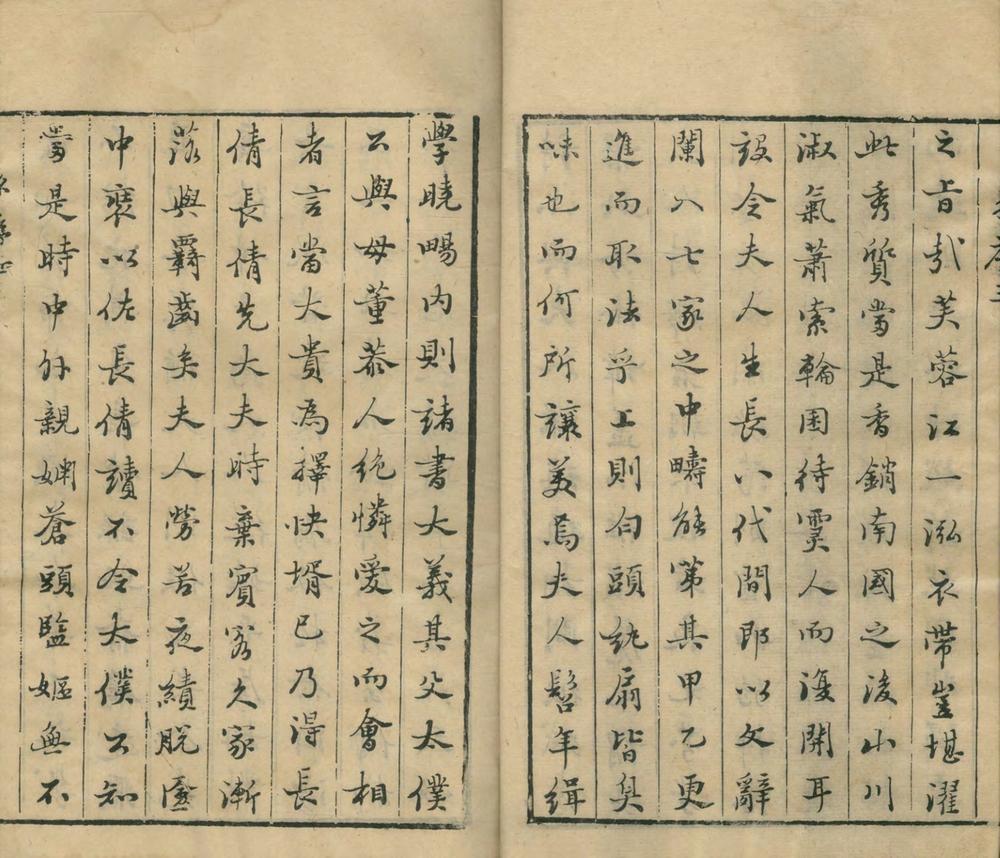 之旨哉芙蓉江一泓衣帶豈堪濯
此秀質當是香銷南國之後山川
淑氣蕭索輪囷待靈人而復開耳
設令夫人生長八代間即以文辭
闌入七家之中疇能第其甲乙更
進而取法乎上則白頭紈扇皆臭
味也而何所讓美焉夫人髫年緝
學曉暢內則諸書大義其父太僕
公與母董恭人絶憐愛之而會相
者言當大貴為擇快壻已乃得長
倩長倩先大夫時棄賓客久家漸
落與霸齒矣夫人勞苦夜績脫
中褏以佐長倩讀不令太僕公知
當是時中外親婣蒼頭監嫗無不